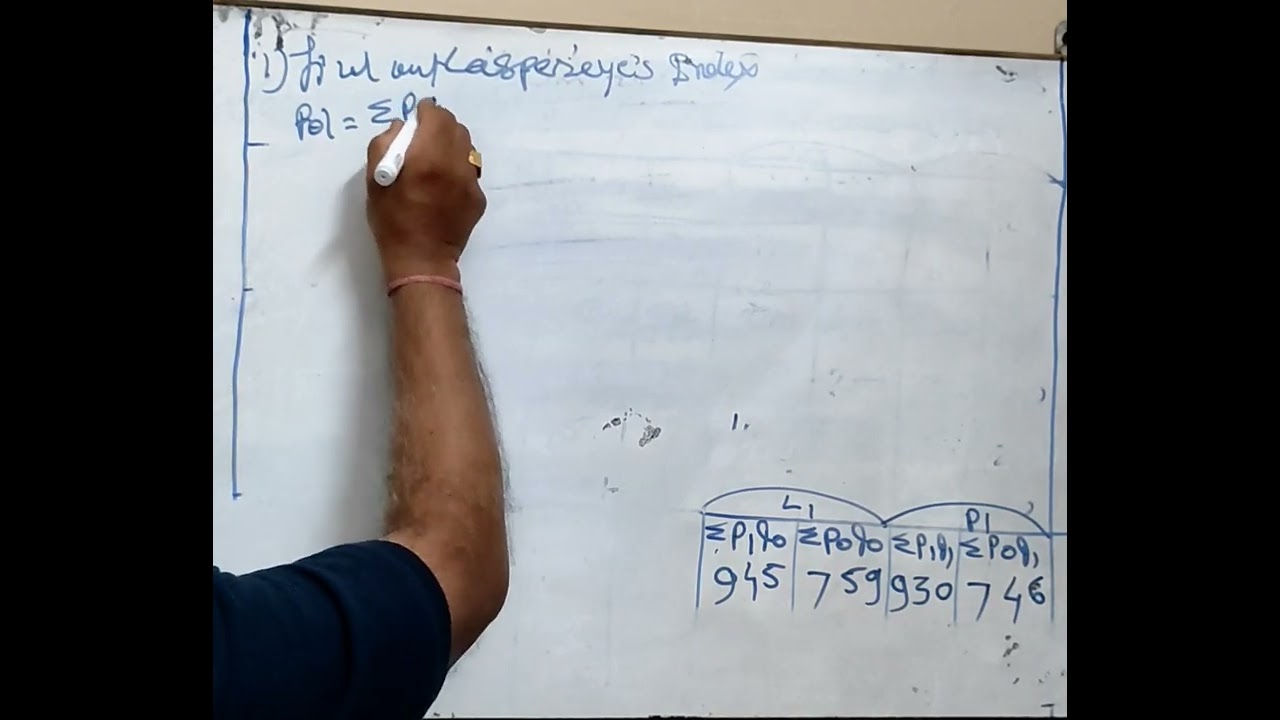 i) find out Laspereye's Index
P01 = ΣP
L1 P1
ΣP1q0 ΣP0q0 ΣP1q1 ΣP0q1
945 759 930 746